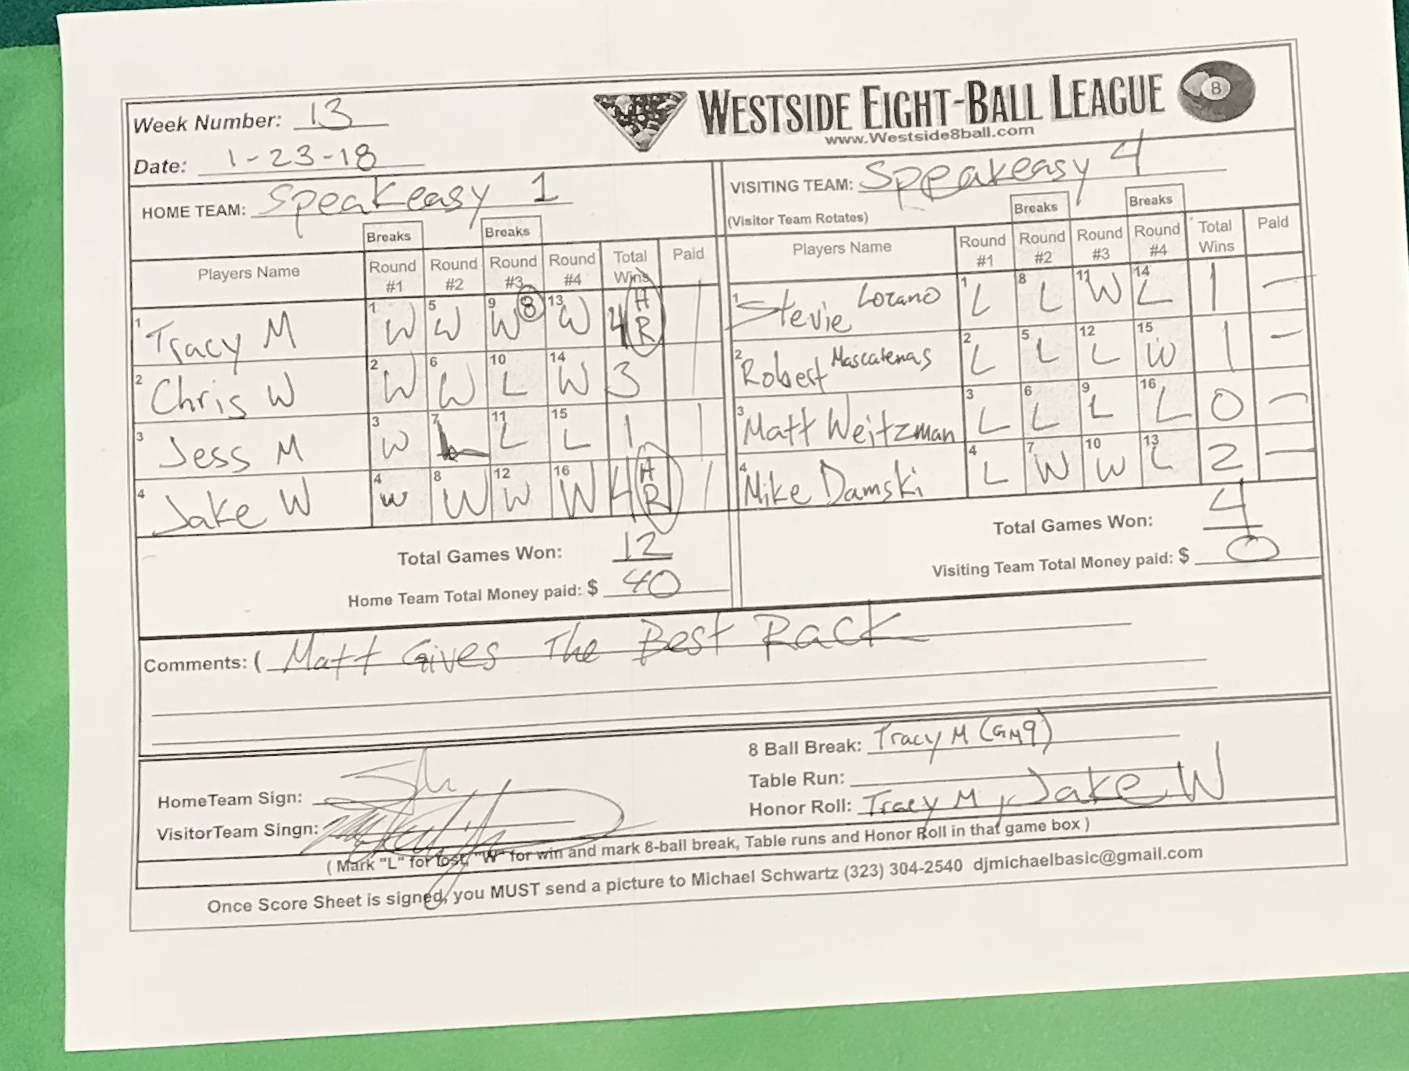 Week Number: 13
WESTSIDE EIGHT-BALL LEAGUE
8
www.Westside8ball.com
Date: 1-23-18
HOME TEAM: Speakeasy 1
VISITING TEAM: Speakeasy 4
(Visitor Team Rotates)
Breaks Breaks
Breaks Breaks
Players Name Round #1 Round #2 Round #3 Round #4 Total Wins Paid
Players Name Round #1 Round #2 Round #3 Round #4 Total Wins Paid
1 Tracy M 1 W 5 W 9 W 8 13 W 4 HR |
1 Stevie Lozano 1 L 8 L 11 W 14 L 1 –
2 Chris W 2 W 6 W 10 L 14 W 3 |
2 Robert Mascarenas 2 L 5 L 12 L 15 W 1 –
3 Jess M 3 W 7 L 11 L 15 L 1 |
3 Matt Weitzman 3 L 6 L 9 L 16 L 0 –
4 Jake W 4 W 8 W 12 W 16 W 4 HR |
4 Mike Damski 4 L 7 W 10 W 13 L 2 –
Total Games Won: 12
Total Games Won: 4
Home Team Total Money paid: $ 40
Visiting Team Total Money paid: $ 0
Comments: ( Matt Gives The Best Rack
8 Ball Break: Tracy M (GM9)
Table Run:
HomeTeam Sign:
Honor Roll: Tracy M, Jake W
VisitorTeam Singn:
( Mark "L" for lost, "W" for win and mark 8-ball break, Table runs and Honor Roll in that game box )
Once Score Sheet is signed, you MUST send a picture to Michael Schwartz (323) 304-2540 djmichaelbasic@gmail.com